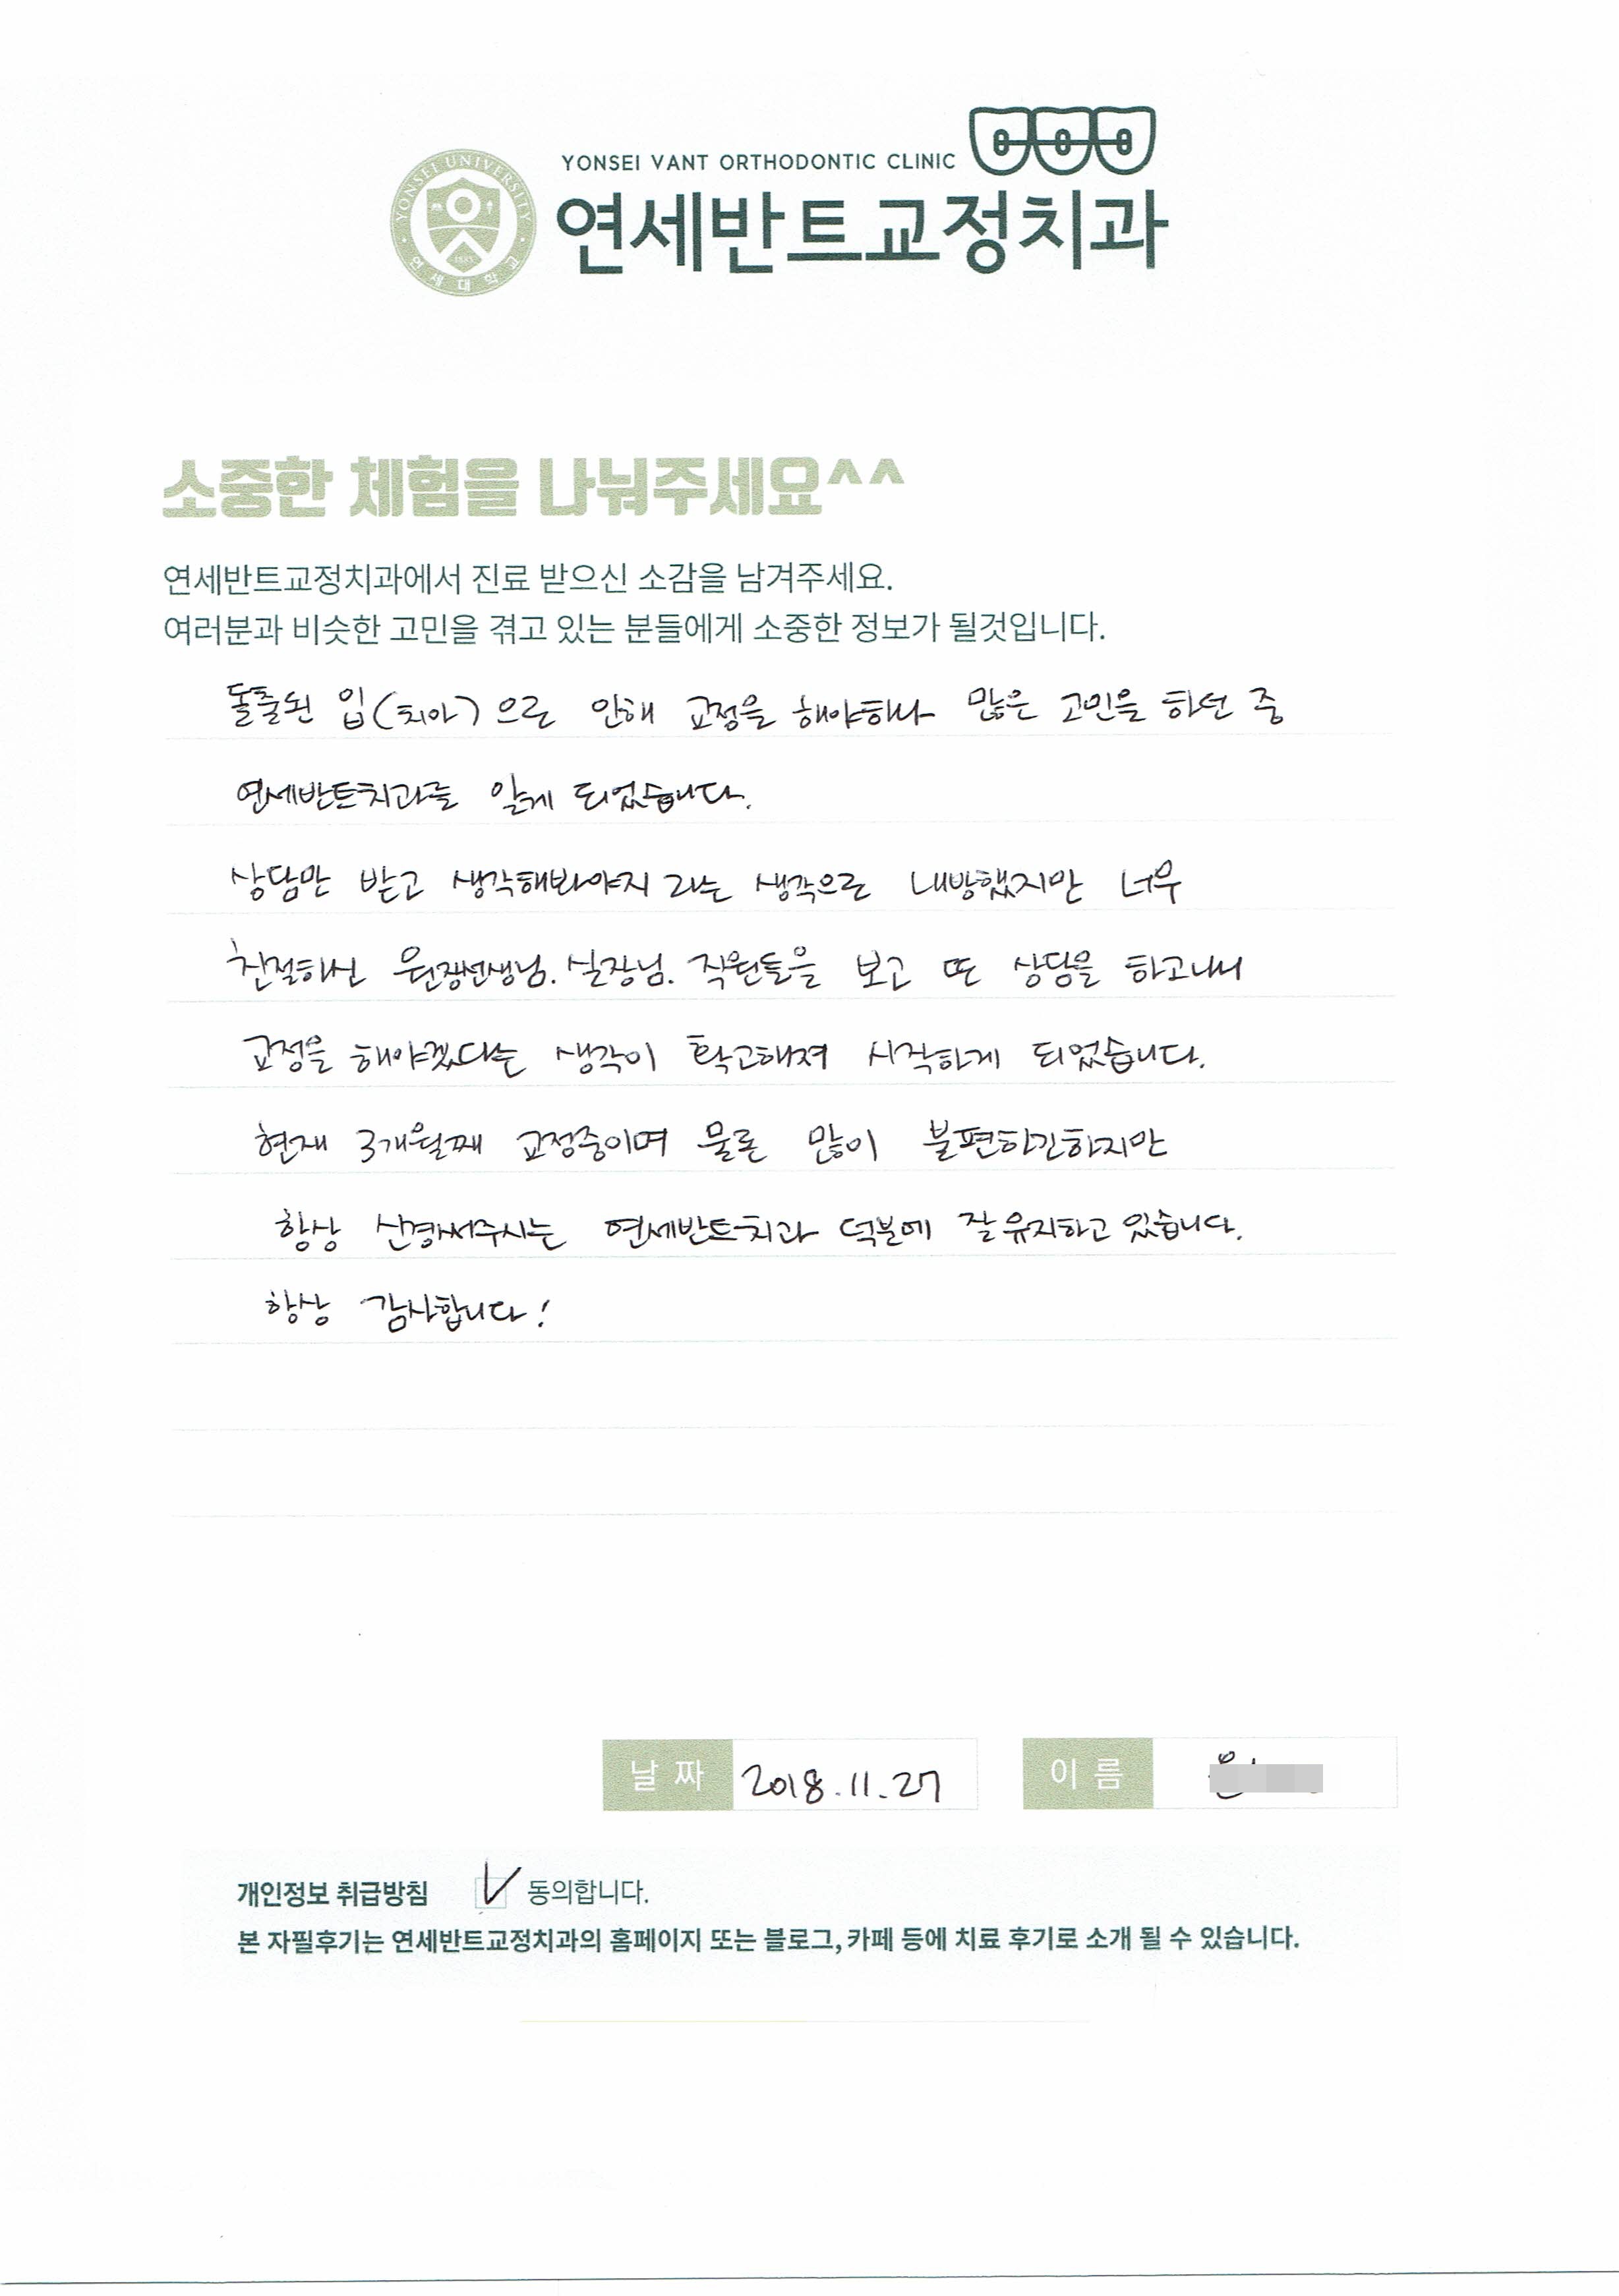 YONSEI VANT ORTHODONTIC CLINIC
YONSEI UNIVERSITY
1885
연세대학교
연세반트교정치과
소중한 체험을 나눠주세요^^
연세반트교정치과에서 진료 받으신 소감을 남겨주세요.
여러분과 비슷한 고민을 겪고 있는 분들에게 소중한 정보가 될것입니다.
돌출된 입(치아)으로 인해 교정을 해야하나 많은 고민을 하던 중
연세반트치과를 알게 되었습니다.
상담만 받고 생각해봐야지 라는 생각으로 내방했지만 너무
친절하신 원장선생님. 실장님. 직원들을 보고 또 상담을 하고나니
교정을 해야겠다는 생각이 확고해져 시작하게 되었습니다.
현재 3개월째 교정중이며 물론 많이 불편하긴하지만
항상 신경써주시는 연세반트치과 덕분에 잘 유지하고 있습니다.
항상 감사합니다!
날 짜 2018.11.27 이 름
개인정보 취급방침 동의합니다.
본 자필후기는 연세반트교정치과의 홈페이지 또는 블로그, 카페 등에 치료 후기로 소개 될 수 있습니다.